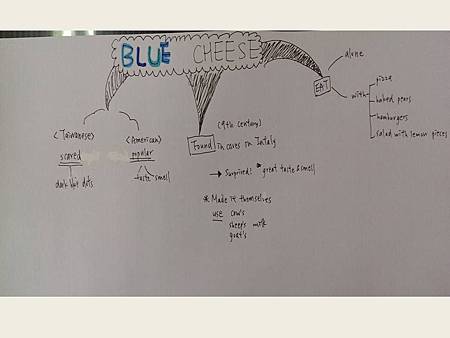 BLUE CHEESE
<Taiwanese>
scared
dark dots
<American>
popular
taste smell
(9th century)
Found in caves in Intaly
→ Surprised: great taste & smell
* Made it themselves
use cow's
sheep's milk
goat's
EAT
alone
with
pizza
baked pears
hamburgers
salad with lemon pieces